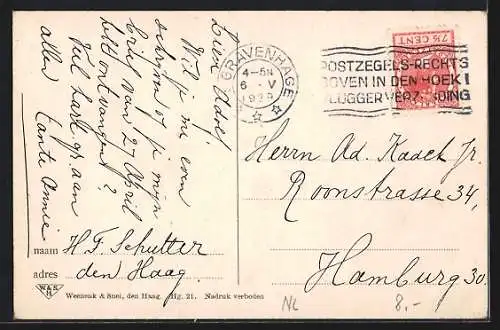 Lieve Adol!
Wil je me even
schrijven of je mijn
brief van 27 April
hebt ontvangen?
Veel hart. gr. aan
allen
Tante Annie
naam H F Schutter
adres den Haag.
W&S
H
Weenenk & Snel, den Haag. Hg. 21. Nadruk verboden
'S GRAVENHAGE
4-5N
6 V
192
POSTZEGELS RECHTS
BOVEN IN DEN HOEK!
VLUGGER VERZENDING
7½ CENT
Herrn Ad. Kadch Jr.
Roonstrasse 34,
Hamburg 30.
NL
8,-